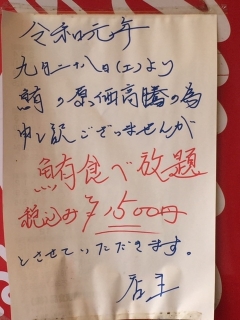 令和元年
九月二八日(土)より
鮪の原価高騰の為
申し訳ございませんが
鮪食べ放題
税込み¥1500円
とさせていただきます。
店主